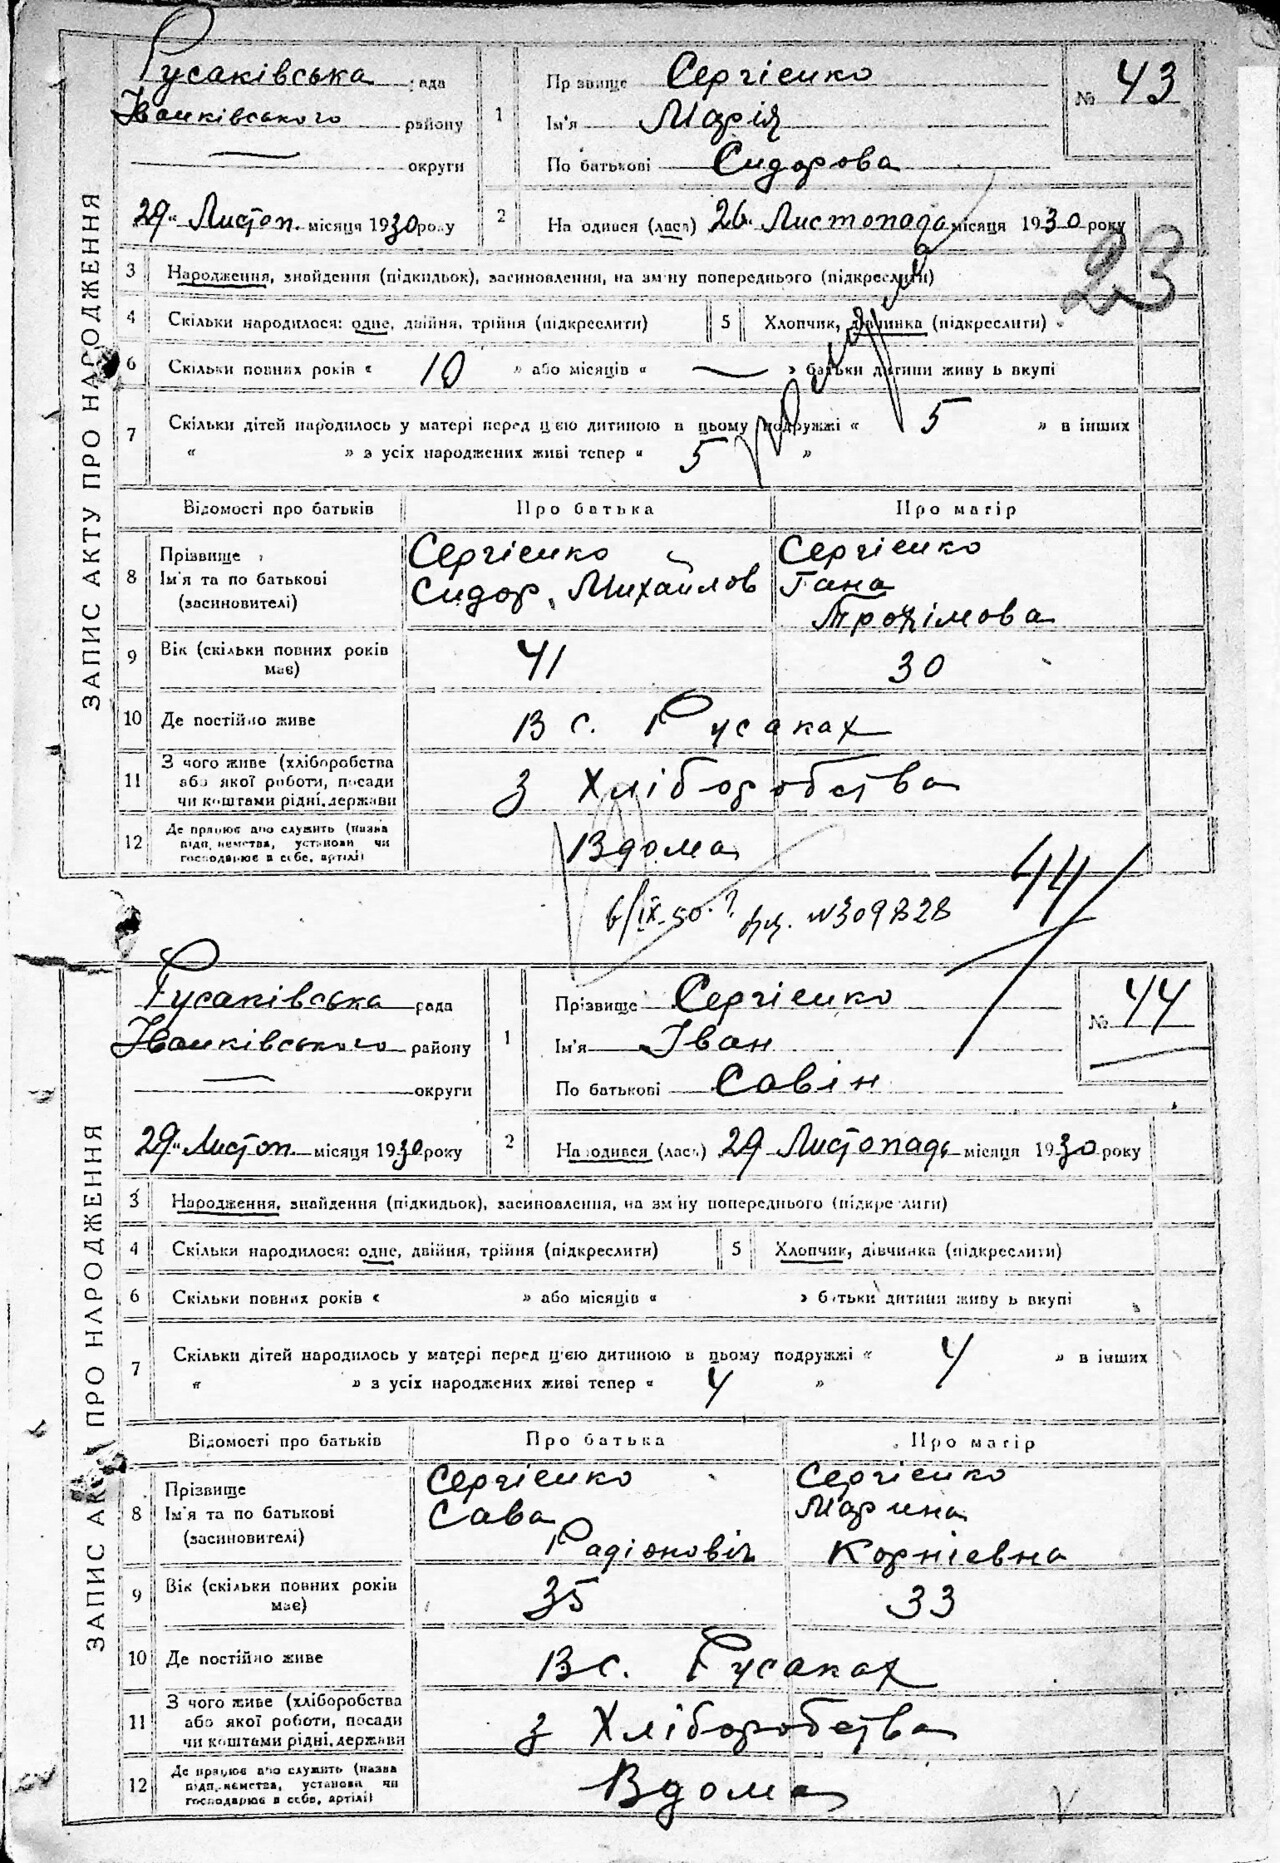 ЗАПИС АКТУ ПРО НАРОДЖЕННЯ
Русаківська рада
Іванківського району
округи
29 Листоп. місяця 1930 року
1 Прізвище Сергієнко
Ім'я Марія
По батькові Сидорова
№ 43
2 Народився (лась) 26 Листопада місяця 1930 року
23
3 Народження, знайдення (підкидьок), засиновлення, на зміну попереднього (підкреслити)
4 Скільки народилося: одне, двійня, трійня (підкреслити) 5 Хлопчик, дівчинка (підкреслити)
6 Скільки повних років « 10 » або місяців « — » батьки дитини живуть вкупі
7 Скільки дітей народилось у матері перед цією дитиною в цьому подружжі « 5 » в інших
« » з усіх народжених живі тепер « 5 »
Відомості про батьків Про батька Про матір
8 Прізвище
Ім'я та по батькові
(засиновителі)
Сергієнко
Сидор Михайлов
Сергієнко
Гана
Трохімова
9 Вік (скільки повних років має) 41 30
10 Де постійно живе В с. Русаках
11 З чого живе (хліборобства
або якої роботи, посади
чи коштами рідні, держави
З Хліборобства
12 Де працює або служить (назва
підприємства, установи чи
господарює в себе, артілі)
Вдома
6/ІХ-50. №309828
44
ЗАПИС АКТУ ПРО НАРОДЖЕННЯ
Русаківська рада
Іванківського району
округи
29 Листоп місяця 1930 року
1 Прізвище Сергієнко
Ім'я Іван
По батькові Савін
№ 44
2 Народився (лась) 29 Листопада місяця 1930 року
3 Народження, знайдення (підкидьок), засиновлення, на зміну попереднього (підкреслити)
4 Скільки народилося: одне, двійня, трійня (підкреслити) 5 Хлопчик, дівчинка (підкреслити)
6 Скільки повних років « » або місяців « » батьки дитини живуть вкупі
7 Скільки дітей народилось у матері перед цією дитиною в цьому подружжі « 4 » в інших
« » з усіх народжених живі тепер « 4 »
Відомості про батьків Про батька Про матір
8 Прізвище
Ім'я та по батькові
(засиновителі)
Сергієнко
Сава
Радіоновіч
Сергієнко
Марина
Корнієвна
9 Вік (скільки повних років має) 35 33
10 Де постійно живе В с. Русаках
11 З чого живе (хліборобства
або якої роботи, посади
чи коштами рідні, держави
З Хліборобства
12 Де працює або служить (назва
підприємства, установи чи
господарює в себе, артілі)
Вдома